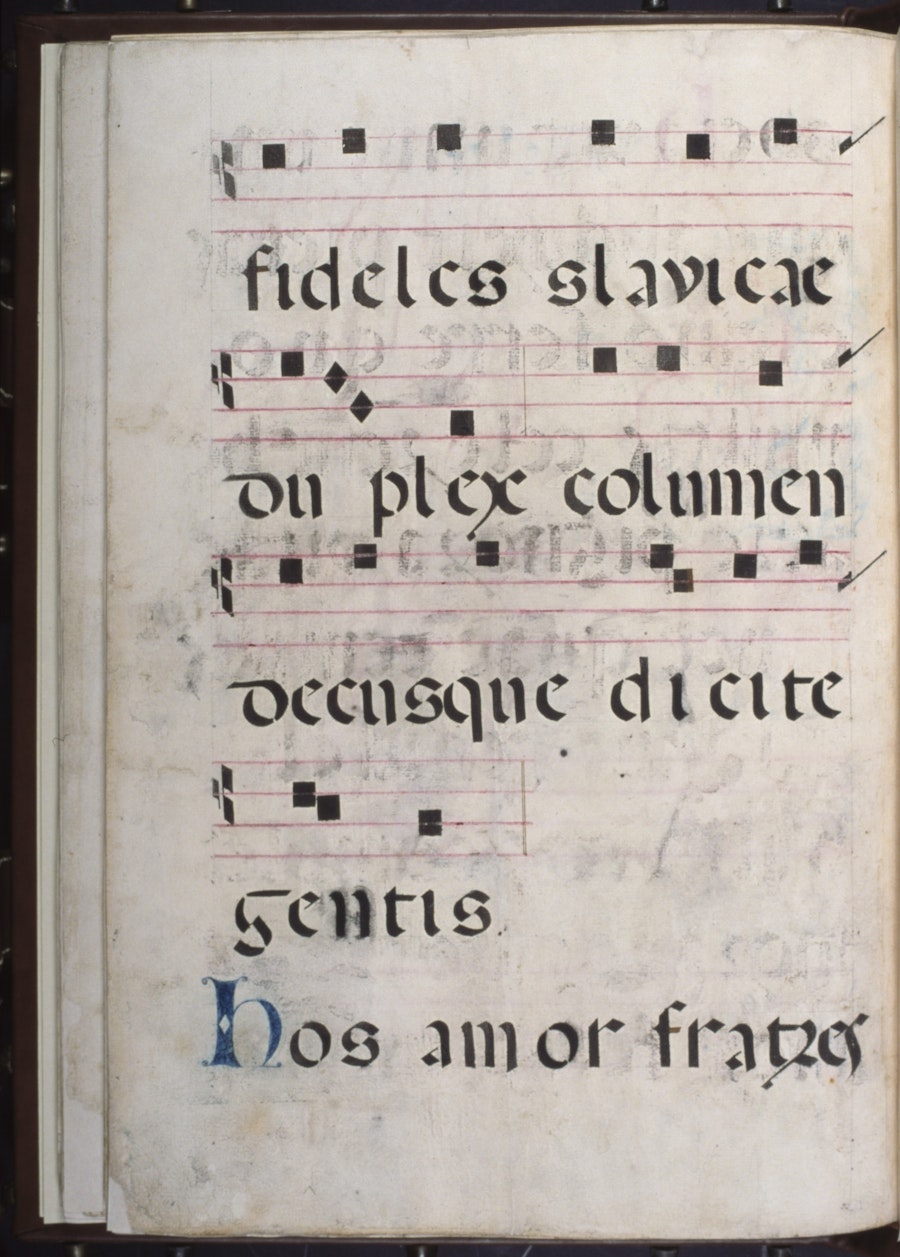 fideles slavicae
du plex columen
decusque dicite
gentis
Hos amor fratres